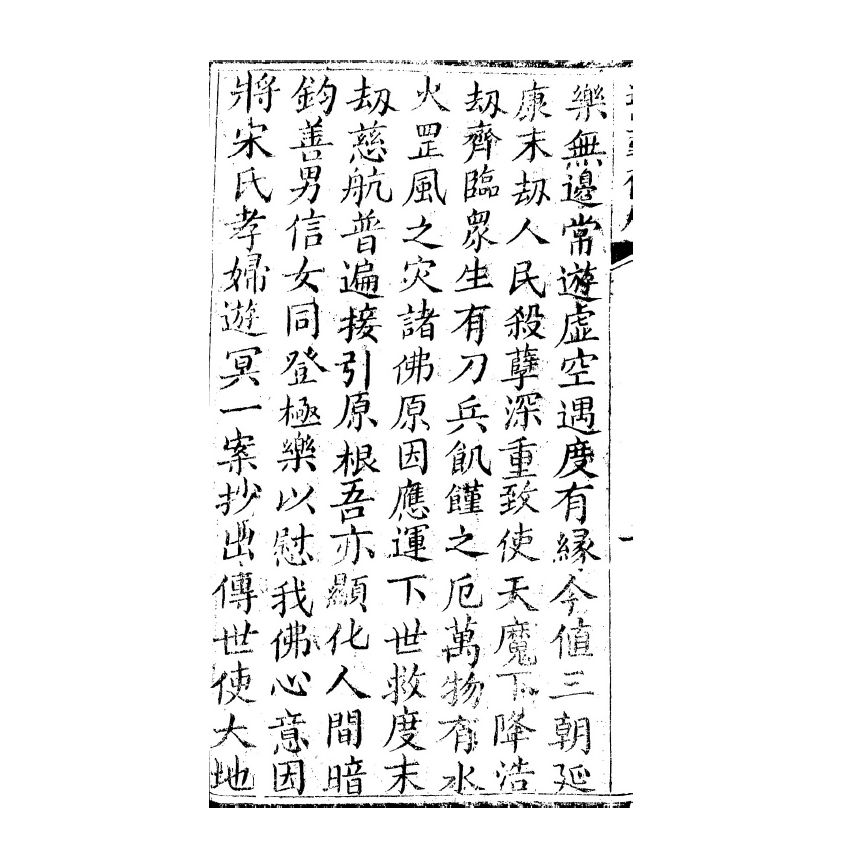 樂無邊常遊虛空遇度有緣今值三朝延
康末刼人民殺孽深重致使天魔下降浩
刼齊臨眾生有刀兵飢饉之厄萬物有水
火罡風之灾諸佛原因應運下世救度末
刼慈航普遍接引原根吾亦顯化人間暗
鈞善男信女同登極樂以慰我佛心意因
將宋氏孝婦遊冥一案抄出傳世使大地